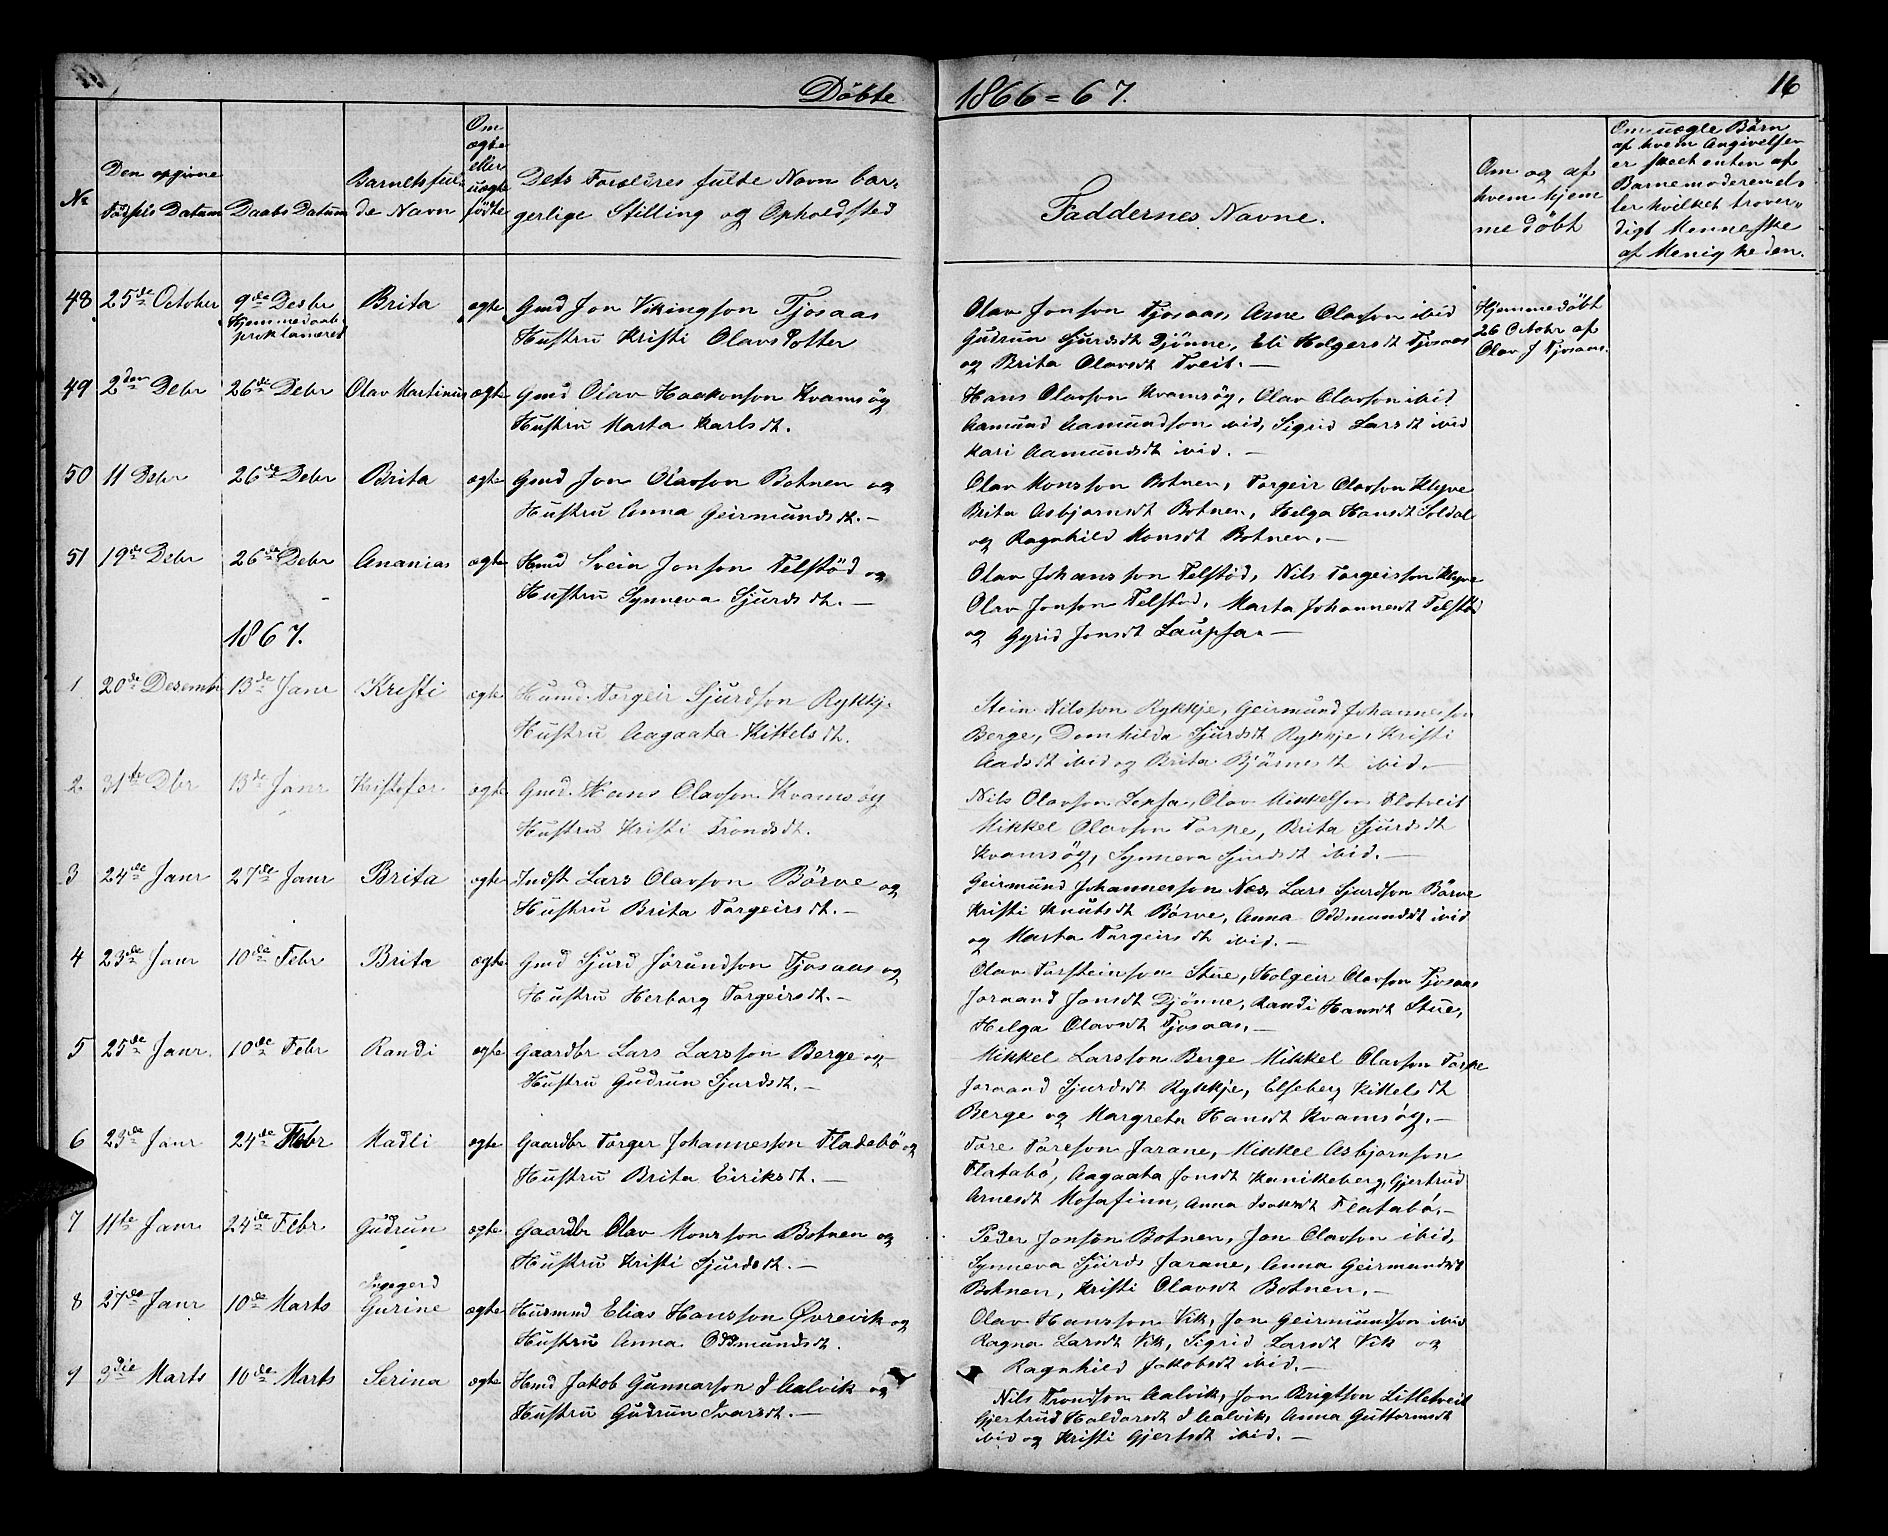 Döbte
1866=67.
16
№
Den opgivne Födsels Datum
Daabs Datum
Barnets fulde Navn
Om ægte eller uægte födte
Dets Forældres fulde Navn borgerlige Stilling og Opholdsted
Faddernes Navne.
Om og af hvem hjemmedöbt
Om uægte Börn af hvem Angivelsen er skeet enten af Barnemoderen eller hvilket troverdigt Menneske af Menigheden.
48 25de October 9de Desbr Brita ægte Gmd Jon Vikingson Tjosaas
Hjemmedaab proklameret
Hustru Kristi Olavsdotter
Olav Jonson Tjosaas, Arne Olavson ibid
Gudrun Sjursdt Djönne, Eli Holgersdt Tjosaas
og Brita Olavsdt Tveit.—
Hjemmedöbt
26 Octobr af
Olav J Tjosaas.
49 2den Debr 26de Debr Olav Martinus ægte Gmd Olav Haakonson Kvamsög
Hustru Marta Karlsdt.
Hans Olavson Kvamsög, Olav Olavson ibid
Aamund Aamundson ibid, Sigrid Larsdt ibid
Kari Aamundsdt ibid.—
50 11 Debr 26de Debr Brita ægte Gmd Jon Olavson Botnen og
Hustru Anna Geirmundsdt.—
Olav Monsson Botnen, Torgeir Olavson Klyve
Brita Asbjornsdt Botnen, Helga Hansdt Soldal
og Ragnhild Monsdt Botnen.—
51 19de Debr 26de Debr Ananias ægte Hmd Svein Jonson Telstöd og
Hustru Synneva Sjursdt.—
Olav Johansson Telstöd, Nils Torgeirson Klyve
Olav Jonson Telstöd, Marta Johannesdt Telstö
og Gyrid Jonsdt Laupsa.—
1867.
1 20de Desembr 13de Janr Kristi ægte Husmd. Torgeir Sjurdson Rykkje
Hustru Aagaata Kittelsdt.
Stein Nilsson Rykkje, Geirmund Johannesson
Berge, Domhilda Sjurdsdt Rykkje, Kristi
Aadsdt ibid og Brita Björnsdt ibid.—
2 31te Dbr 13de Janr Kristofer ægte Gmd. Hans Olavson Kvamsög
Hustru Kristi Trondsdt.
Nils Olavson Sexsa, Olav Mikkelson Flotveit
Mikkel Olavson Torpe, Brita Sjurdsdt
Kvamsög, Synneva Sjurdsdt ibid.—
3 24de Janr 27de Janr Brita ægte Indst Lars Olavson Börve og
Hustru Brita Torgeirsdt.—
Geirmund Johannesson Nes, Lars Sjurdson Börve
Kristi Knutsdt Börve, Anna Oddmundsdt ibid
og Marta Torgeirsdt ibid.—
4 23de Janr 10de Febr Brita ægte Gmd Sjurd Jörundson Tjosaas og
Hustru Herborg Torgeirsdt.—
Olav Torsteinson Stue, Holgeir Olavson Tjosaas
Joraand Jonsdt Djönne, Randi Hansdt Stue,
Helga Olavsdt Tjosaas.—
5 25de Janr. 10de Febr Randi ægte Gaardbr Lars Larsson Berge og
Hustru Gudrun Sjurdsdt.—
Mikkel Larsson Berge Mikkel Olavson Torpe
Joraand Sjurdsdt Rykkje, Elseberg Kittelsdt
Berge og Margreta Hansdt Kvamsög.—
6 23de Janr 24de Febr Madli ægte Gaardbr Torger Johannesson Fladebö og
Hustru Brita Eiriksdt.—
Tore Toreson Jarane, Mikkel Asbjornson
Flatabö, Aagaata Jonsdt Kanikeberg, Gjertrud
Arnesdt Mosafinn, Anna Isaksdt Flatabö.—
7 11te Janr 24de Febr Gudrun ægte Gaardbr Olav Monsson Botnen og
Hustru Kristi Sjurdsdt.—
Peder Jonson Botnen, Jon Olavson ibid,
Synneva Sjurds Jarane, Anna Geirmundsdt
Botnen, Kristi Olavsdt Botnen.—
8 27de Janr 10de Marts Ingegerd Gurine ægte Husmnd Elias Hansson Øvrevik og
Hustru Anna Oddmundsdt.
Olav Hansson Vik, Jon Geirmundson ibid
Ragna Larsdt Vik, Sigrid Larsdt Vik og
Ragnhild Jakobsdt ibid.—
9 3die Marts 10de Marts Serina ægte Hmd Jakob Gunnarson I Aalvik og
Hustru Gudrun Ivarsdt.—
Nils Trondson Aalvik, Jon Brigtson Litletveit
Gjertrud Haldorsdt I Aalvik, Anna Guttormsdt
ibid og Kristi Gjertsdt ibid.—